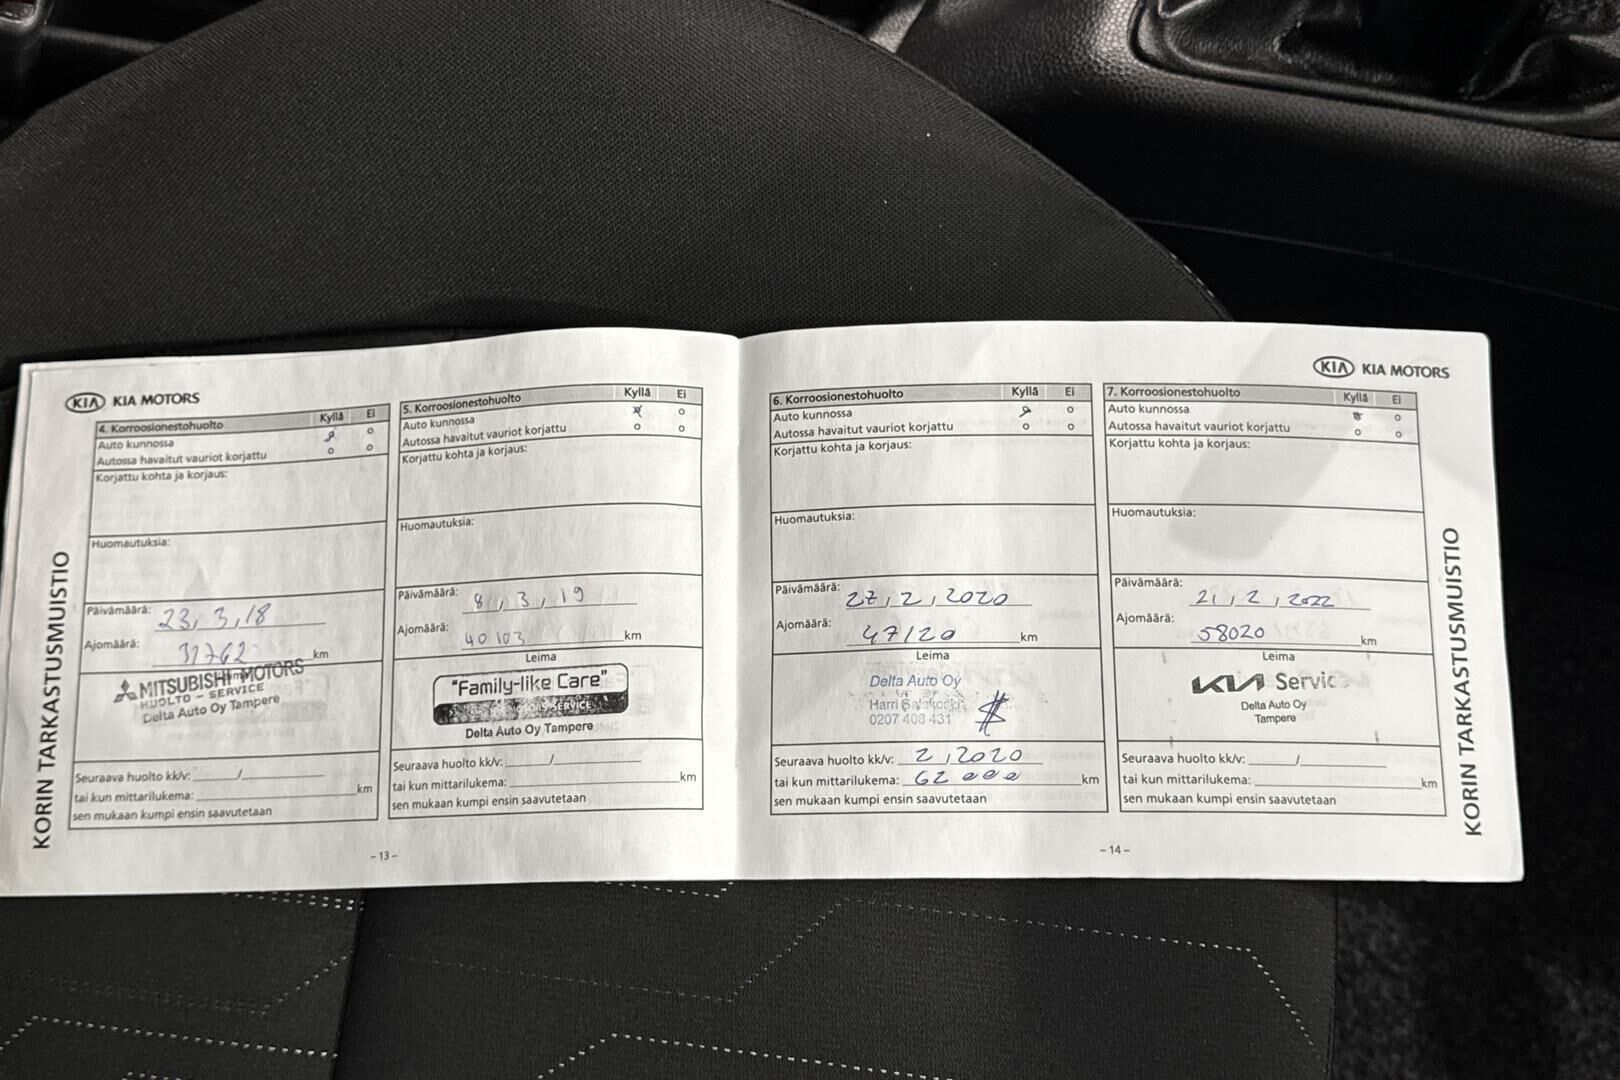 KIA KIA MOTORS
KORIN TARKASTUSMUISTIO
4. Korroosionestohuolto Kyllä Ei
Auto kunnossa
Autossa havaitut vauriot korjattu
Korjattu kohta ja korjaus:
Huomautuksia:
Päivämäärä: 23,3,18
Ajomäärä: 31762 km
MITSUBISHI MOTORS
HUOLTO - SERVICE
Delta Auto Oy Tampere
Seuraava huolto kk/v: /
tai kun mittarilukema: km
sen mukaan kumpi ensin saavutetaan
5. Korroosionestohuolto Kyllä Ei
Auto kunnossa
Autossa havaitut vauriot korjattu
Korjattu kohta ja korjaus:
Huomautuksia:
Päivämäärä: 8,3,19
Ajomäärä: 40103 km
Leima
"Family-like Care"
SERVICE
Delta Auto Oy Tampere
Seuraava huolto kk/v: /
tai kun mittarilukema: km
sen mukaan kumpi ensin saavutetaan
- 13 -
6. Korroosionestohuolto Kyllä Ei
Auto kunnossa
Autossa havaitut vauriot korjattu
Korjattu kohta ja korjaus:
Huomautuksia:
Päivämäärä: 27,2,2020
Ajomäärä: 47120 km
Leima
Delta Auto Oy
Harri
0207 408 431
Seuraava huolto kk/v: 2/2020
tai kun mittarilukema: 62000 km
sen mukaan kumpi ensin saavutetaan
KIA KIA MOTORS
7. Korroosionestohuolto Kyllä Ei
Auto kunnossa
Autossa havaitut vauriot korjattu
Korjattu kohta ja korjaus:
Huomautuksia:
Päivämäärä: 21,2,2022
Ajomäärä: 58020 km
Leima
KIA Servic
Delta Auto Oy
Tampere
Seuraava huolto kk/v: /
tai kun mittarilukema: km
sen mukaan kumpi ensin saavutetaan
- 14 -
KORIN TARKASTUSMUISTIO